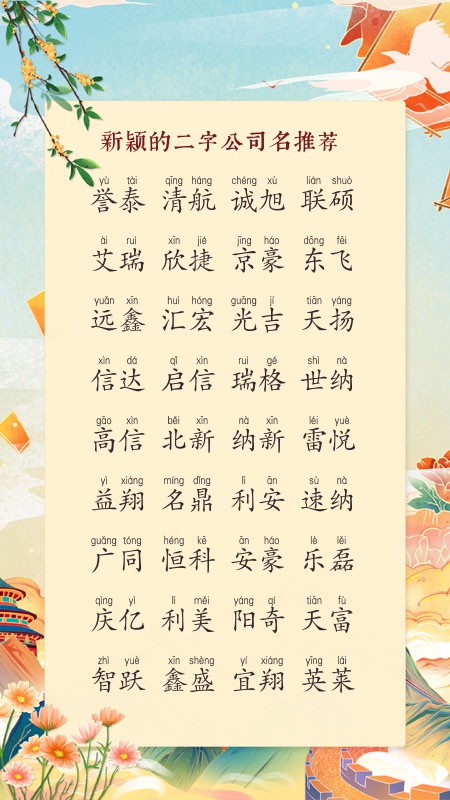 新颖的二字公司名推荐
yù tài qīng háng chéng xù lián shuò
誉泰 清航 诚旭 联硕
ài ruì xīn jié jīng háo dōng fēi
艾瑞 欣捷 京豪 东飞
yuǎn xīn huì hóng guāng jí tiān yáng
远鑫 汇宏 光吉 天扬
xìn dá qǐ xìn ruì gé shì nà
信达 启信 瑞格 世纳
gāo xìn běi xīn nà xīn léi yuè
高信 北新 纳新 雷悦
yì xiáng míng dǐng lì ān sù nà
益翔 名鼎 利安 速纳
guǎng tóng héng kē ān háo lè lěi
广同 恒科 安豪 乐磊
qìng yì lì měi yáng qí tiān fù
庆亿 利美 阳奇 天富
zhì yuè xīn shèng yí xiáng yīng lái
智跃 鑫盛 宜翔 英莱